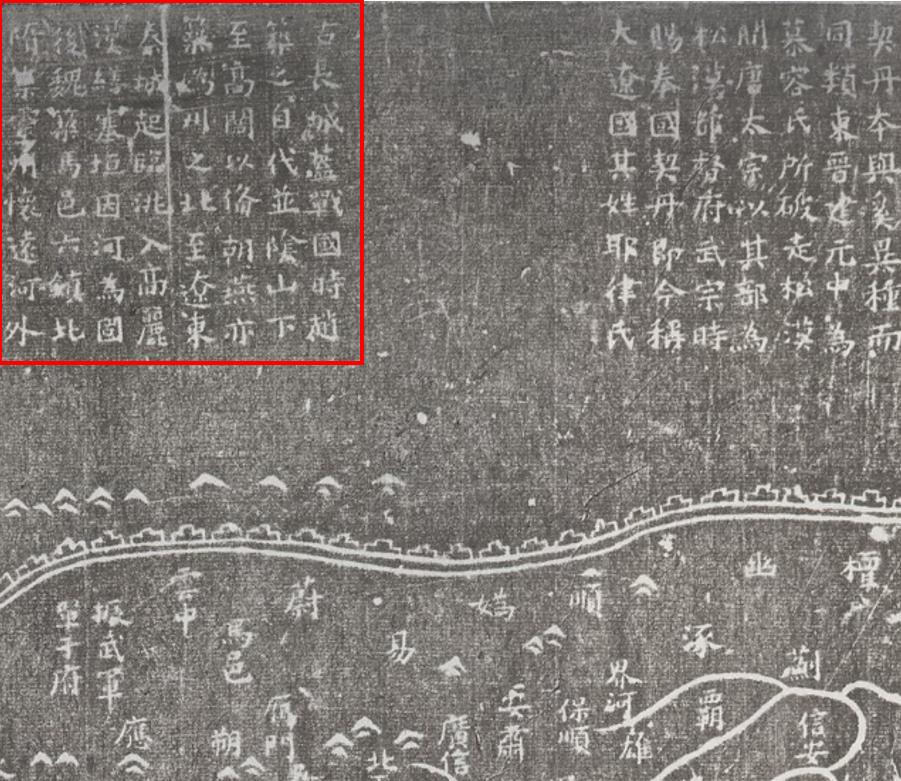 契丹本與奚異種而
同類東晉建元中為
慕容氏所破走松漠
間唐太宗以其部為
松漠都督府武宗時
賜奉國契丹即今稱
大遼國其姓耶律氏
古長城蓋戰國時趙
築之自代並陰山下
至高闕以俻胡燕亦
築媯州之北至遼東
秦城起臨洮入高麗
漢繕塞垣因河為固
後魏築馬邑六鎮北
隋築靈州懷遠河外
檀
幽
順
媯
蔚
雲中
振武軍
單于府
薊
涿
易
馬邑
信安
霸
界河
雄
保順
安肅
廣信
北
鴈門
朔
應